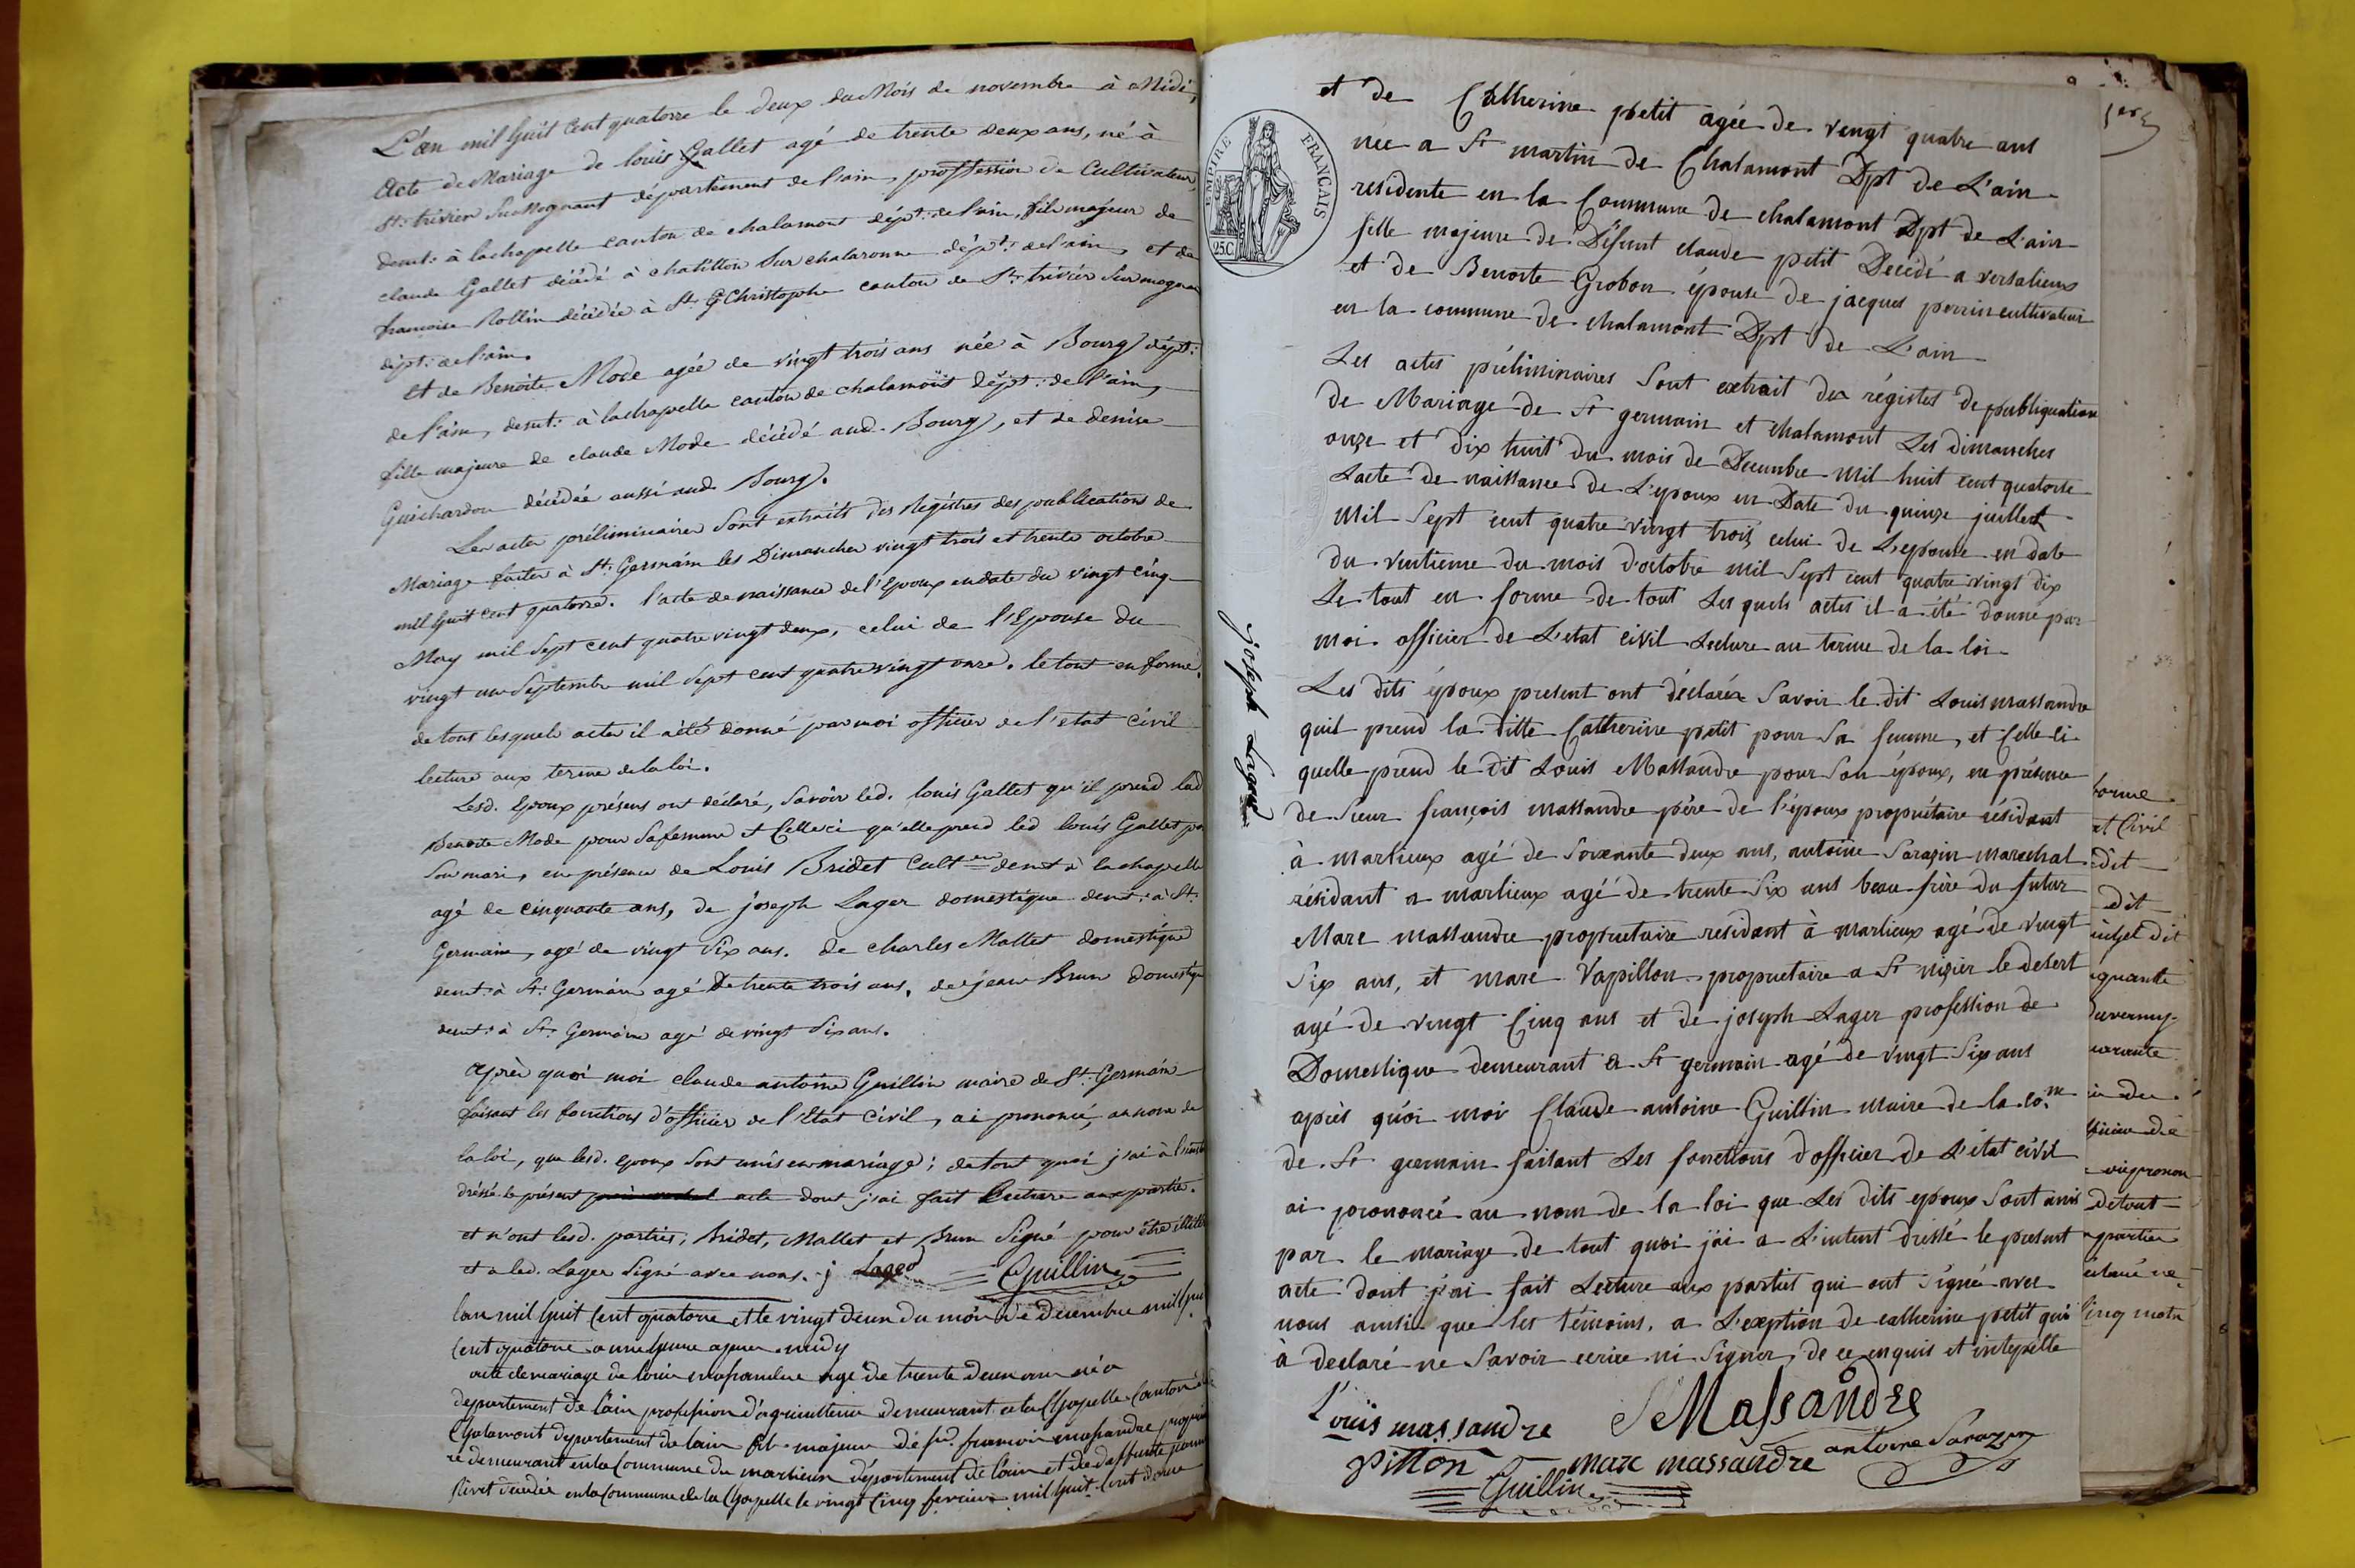 L'an mil huit Cent quatorze le deux du Mois de novembre à Midi,
Acte de Mariage de louis Gallet agé de trente deux ans, né à
St. trivier Sur Mognant département de l'ain, proffession de Cultivateur,
demt: à lachapelle canton de chalamont dépt: de l'ain, fils majeur de
claude Gallet décédé à chatillon Sur chalaronne dépt: de l'ain, et de
francoise Rollin décédée à St. Christophe canton de St. trivier Sur mognan
dépt: de l'ain.
Et de Benoite Mode agée de vingt trois ans née à Bourg dépt:
de l'ain, demt: à lachapelle canton de chalamont dépt: de l'ain,
fille majeure de claude Mode décédé aud. Bourg, et de denise
Guichardon décédée aussi aud. Bourg.
Les actes préliminaires Sont extraits des Régistres des publications de
Mariage faites à St: Germain les Dimanches vingt trois et trente octobre
mil huit cent quatorze. l'acte de naissance de l'Epoux en date du vingt cinq
May mil Sept cent quatre vingt deux, celui de l'Epouse du
vingt un Septembre mil Sept cent quatre vingt onze. le tout en forme,
de tous lesquels actes il a été donné par moi officier de l'etat civil
lecture aux terme de la loi.
Lesd. Epoux présens ont déclaré, Savoir led. louis Gallet qu'il prend lad
Benoite Mode pour Safemme et Celleci qu'elle prend led louis Gallet po
Son mari, en présence de Louis Bridet Culteur demt à lachapelle
agé de cinquante ans, de joseph Lager domestique demt: à St:
Germain, agé de vingt Six ans. de charles Mallet domestique
demt: à St: Germain agé de trente trois ans, de jean Brun domestiq
demt: à St: Germain agé de vingt Six ans.
Après quoi moi claude antoine Guillin maire de St: Germain
faisant les fonctions d'officier de l'Etat Civil, ai prononcé, au nom de
la loi, que lesd. epoux Sont unis en mariage; de tout quoi j'ai à l'insta
dréssé le présent acte dont j'ai fait Lecture aux parties.
et n'ont lesd. parties, Bridet, Mallet et Brun Signé pour être illité
et a led. Lager Signé avec nous. j Lager Guillin
lan mil huit Cent quatorze et le vingt deux du mois de decembre mil hui
Cent quatorze a une heure apres midy
acte de mariage de louis massandre age de trente deux ans né a
departement de lain profession d'agriculteur demeurant a la Chapelle Canton de
Chalamont departement de lain fils majeur de françois massandre propriet
re demeurant en la Commune du marlieux département de lain et de deffunte
décédée en la Commune de la Chapelle le vingt Cinq fevrier mil huit Cent douze
EMPIRE FRANÇAIS
25C
joseph Lager
et de Catherine petit agée de vingt quatre ans
née a St martin de Chalamont Dpt de L'ain
residente en la Commune de chalamont Dpt de L'ain
fille majeure de Défunt claude petit Décédé a versalieux
et de Benoite Grobon épouse de jacques perrin cultivateur
en la commune de chalamont Dpt de L'ain
Les actes préliminaires Sont extrait des régistes de publiquations
de Mariage de St germain et chalamont Les dimanches
onze et dix huit du mois de Decembre mil huit cent quatorse
Lacte de naissance de L'époux en Date du quinze juillet
Mil Sept cent quatre vingt trois, celui de L'epouse en date
du vintieme du mois d'octobre mil Sept cent quatre vingt dix
Le tout en forme de tout Les quels actes il a été donné par
moi officier de L'etat civil Lecture au terme de la loi
Les dits époux present ont déclarér Savoir le dit Louis massandre
quil prend la ditte Catherine petit pour Sa femme, et Celle ci
quelle prend le dit Louis Massandre pour Son époux, en présence
de Sieur françois massandre père de l'époux propriétaire résidant
à marlieux agé de Soixante deux ans, antoine Sarazin marechal
résidant a marlieux agé de trente Six ans beau frère du futur
Marc massandre proprietaire residant à marlieux agé de vingt
Six ans, et marc Vapillon proprietaire a St nizier le desert
agé de vingt Cinq ans et de joseph Lager profession de
Domestique demeurant a St germain agé de vingt Six ans
après quoi moi Claude antoine Guillin maire de la come
de St germain faisant Les fonctions d'officier de L'état civil
ai prononcé au nom de la loi que Les dits epoux Sont unis
par le mariage de tout quoi j'ai a L'intent dressé le present
acte dont j'ai fait Lecture aux parties qui ont Signé avec
nous ainsi que les témoins, a L'exeption de catherine petit qui
à declaré ne Savoir ecrire ni Signer, de ce enquis et intepellé
Louis massandre Massandre
Pitton marc massandre antoine Sarazin
Guillin
forme
at Civil
dit
dit
quante
arante
pronon
de tout
partier
Cinq mots